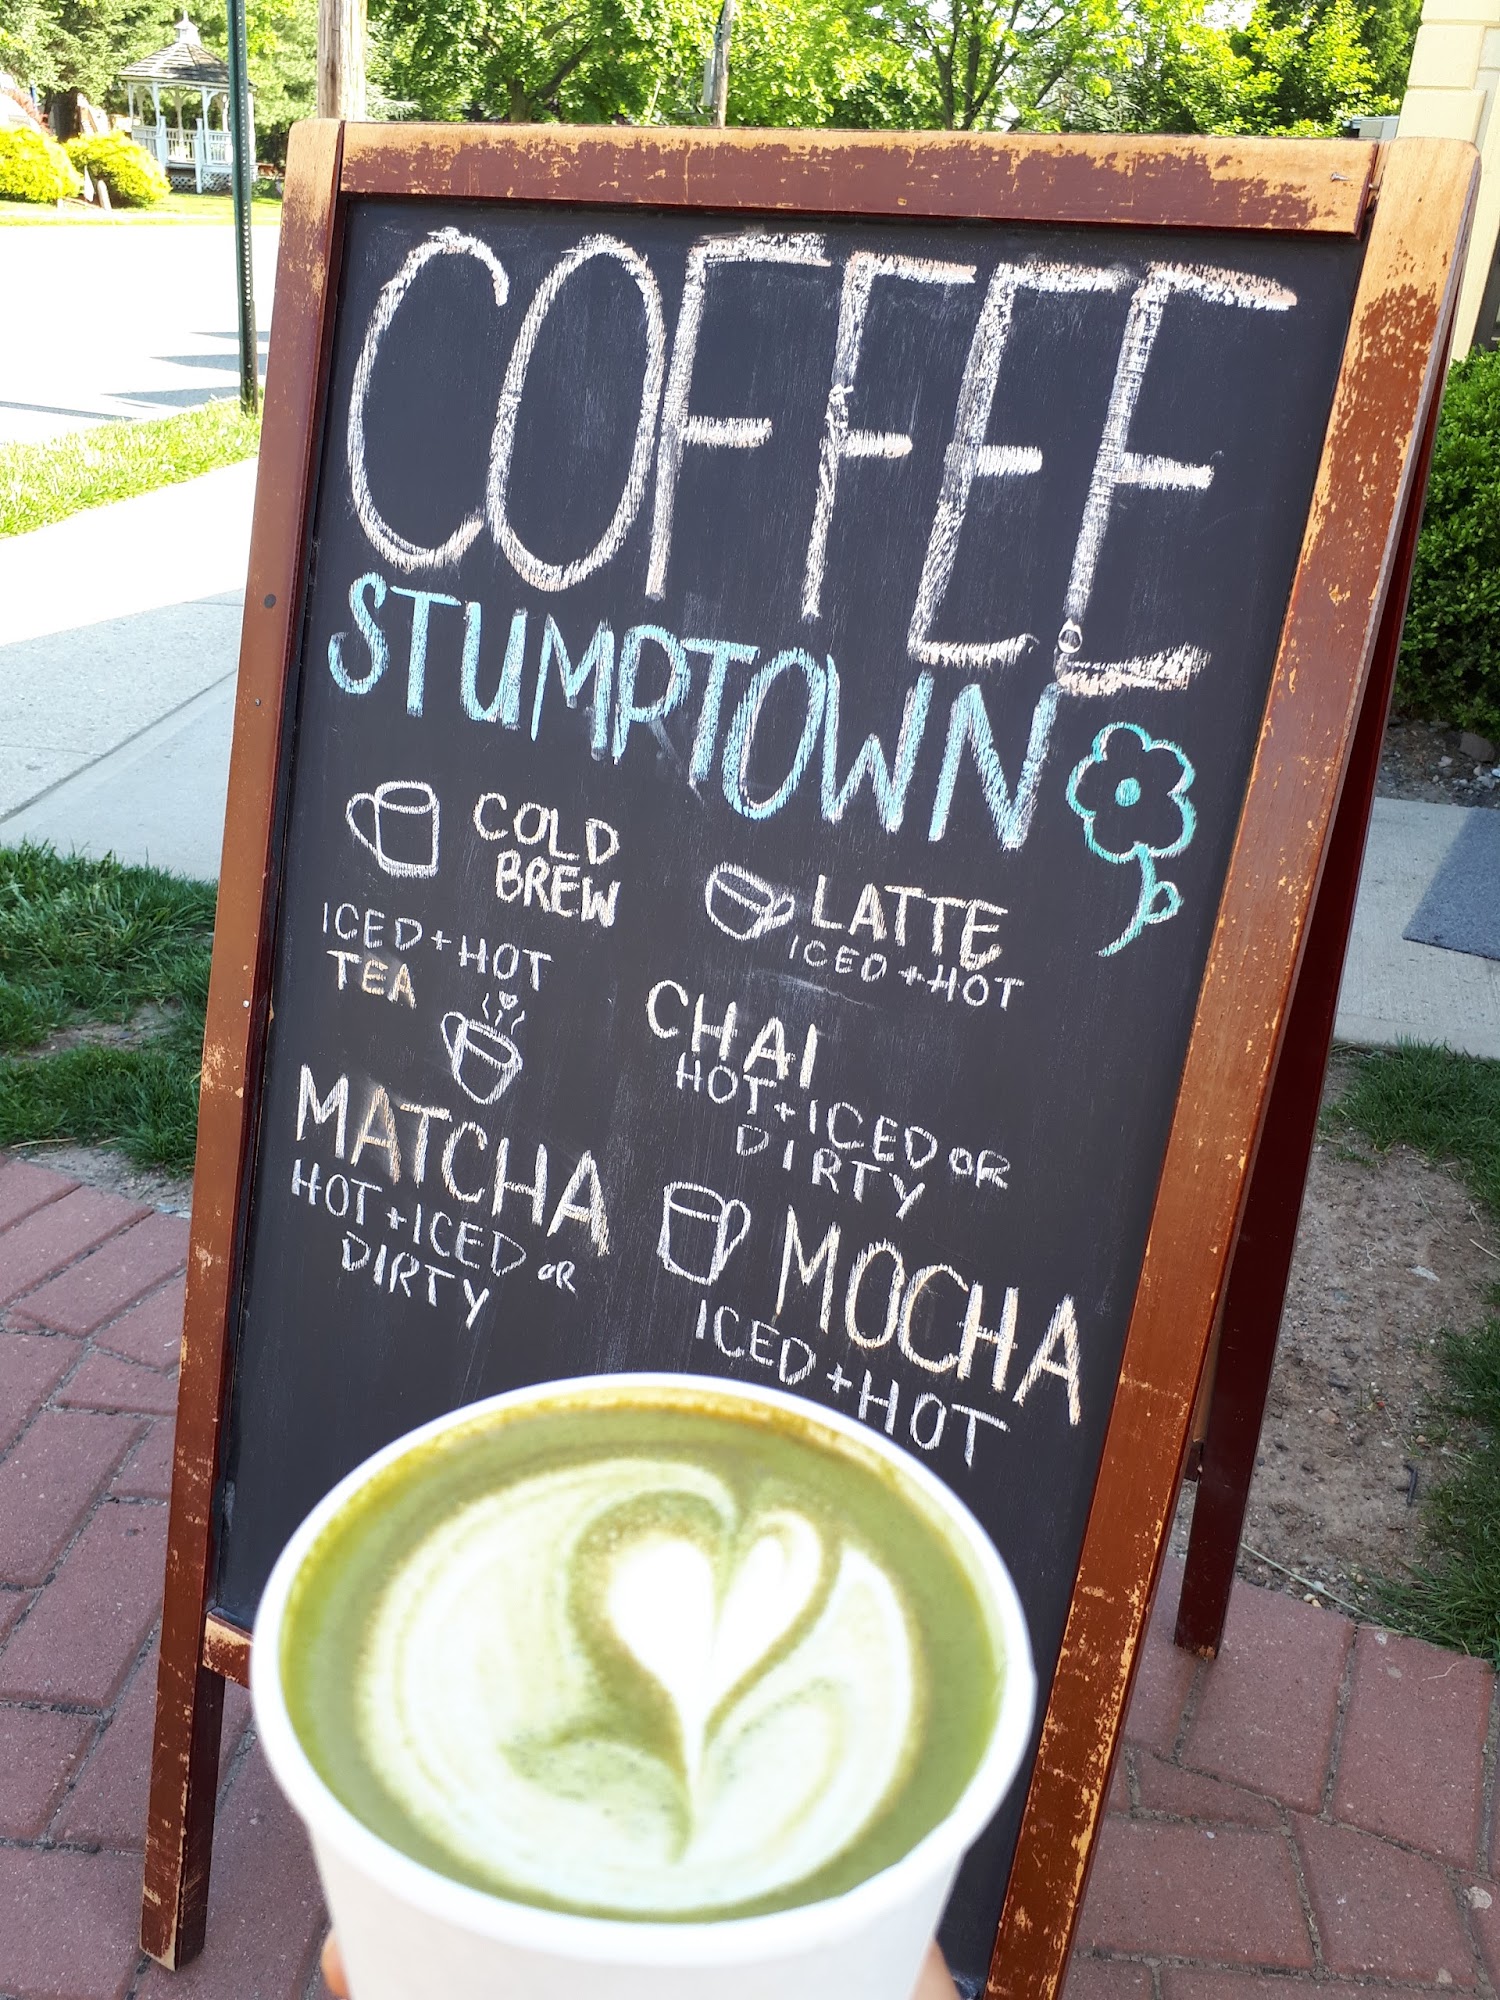 COFFEE
STUMPTOWN
COLD
BREW
ICED + HOT
TEA
MATCHA
HOT + ICED OR
DIRTY
LATTE
ICED + HOT
CHAI
HOT + ICED OR
DIRTY
MOCHA
ICED + HOT